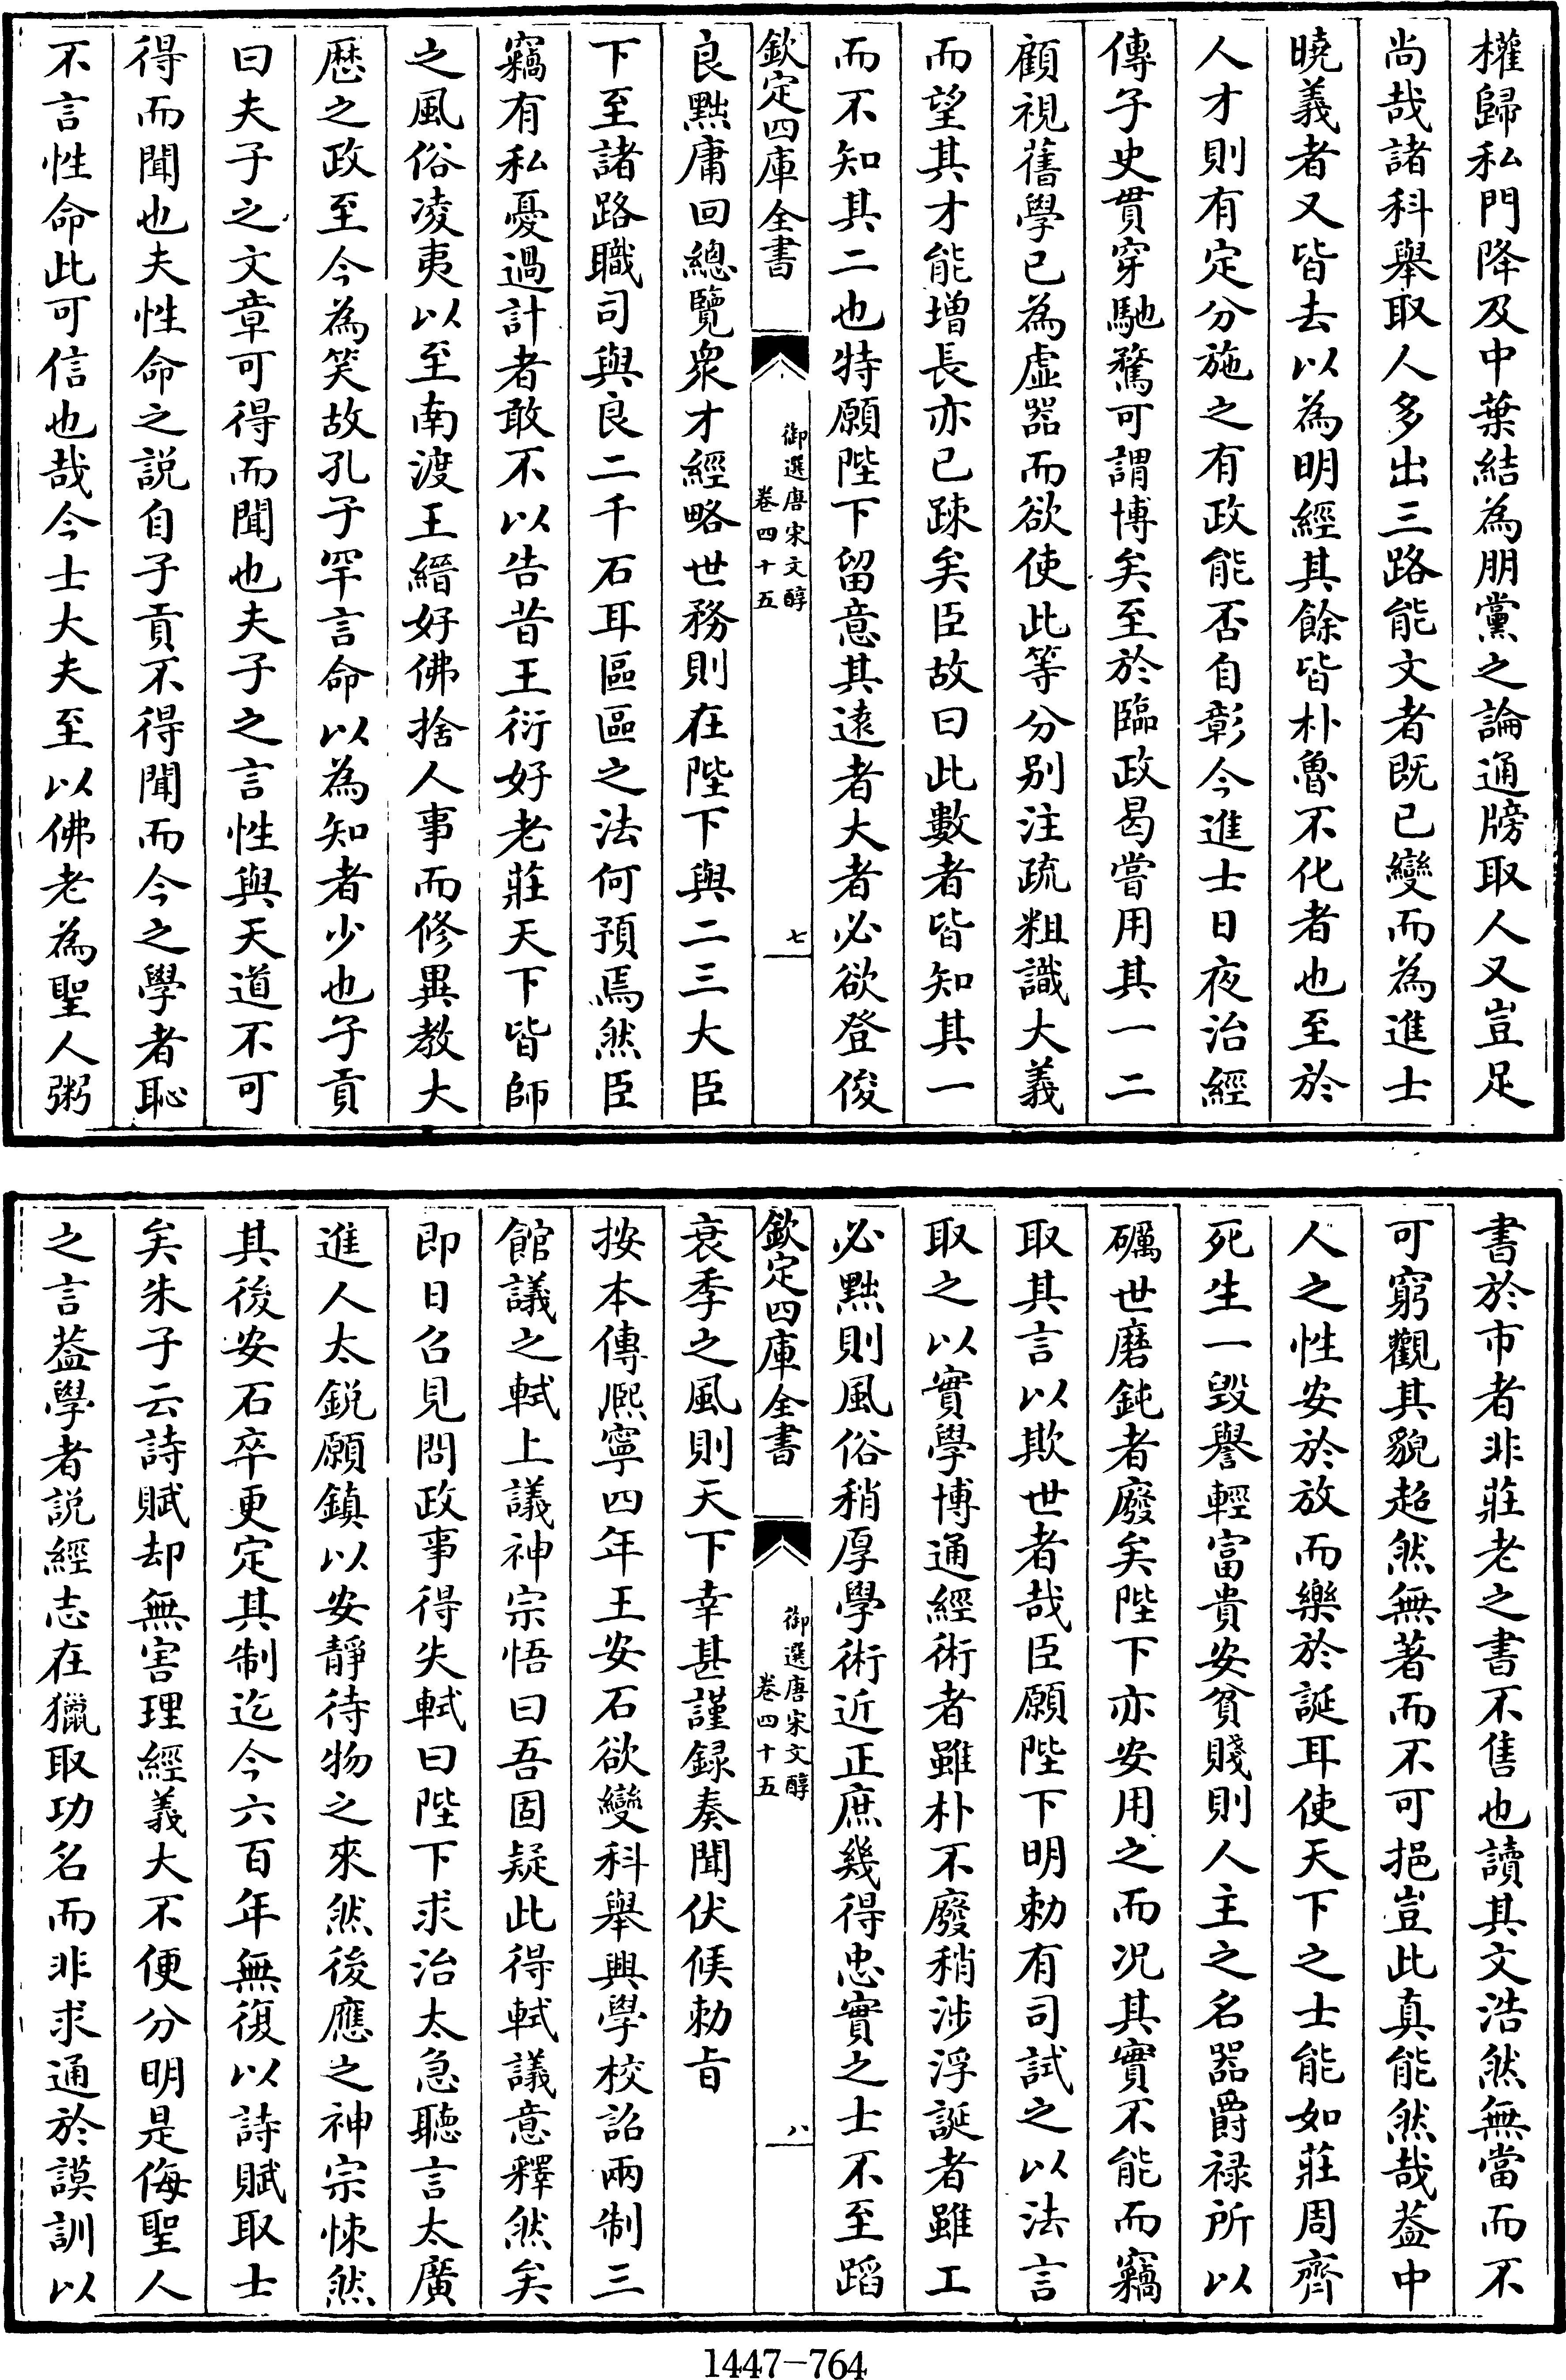 權歸私門降及中葉結為朋黨之論通牓取人又豈足
尚哉諸科舉取人多出三路能文者既已變而為進士
曉義者又皆去以為明經其餘皆朴魯不化者也至於
人才則有定分施之有政能否自彰今進士日夜治經
傳子史貫穿馳騖可謂博矣至於臨政曷嘗用其一二
顧視舊學已為虛器而欲使此等分别注疏粗識大義
而望其才能增長亦已疎矣臣故曰此數者皆知其一
而不知其二也特願陛下留意其遠者大者必欲登俊
欽定四庫全書
御選唐宋文醇
卷四十五
七
良黜庸回總覽衆才經略世務則在陛下與二三大臣
下至諸路職司與良二千石耳區區之法何預焉然臣
竊有私憂過計者敢不以告昔王衍好老莊天下皆師
之風俗凌夷以至南渡王縉好佛捨人事而修異教大
厯之政至今為笑故孔子罕言命以為知者少也子貢
曰夫子之文章可得而聞也夫子之言性與天道不可
得而聞也夫性命之説自子貢不得聞而今之學者恥
不言性命此可信也哉今士大夫至以佛老為聖人粥
書於市者非莊老之書不售也讀其文浩然無當而不
可窮觀其貌超然無著而不可挹豈此真能然哉葢中
人之性安於放而樂於誕耳使天下之士能如莊周齊
死生一毁譽輕富貴安貧賤則人主之名器爵禄所以
礪世磨鈍者廢矣陛下亦安用之而况其實不能而竊
取其言以欺世者哉臣願陛下明勅有司試之以法言
取之以實學博通經術者雖朴不廢稍涉浮誕者雖工
必黜則風俗稍厚學術近正庶幾得忠實之士不至蹈
欽定四庫全書
御選唐宋文醇
卷四十五
八
衰季之風則天下幸甚謹録奏聞伏候勅旨
按本傳熈寧四年王安石欲變科舉興學校詔兩制三
館議之軾上議神宗悟曰吾固疑此得軾議意釋然矣
即日召見問政事得失軾曰陛下求治太急聽言太廣
進人太鋭願鎮以安靜待物之來然後應之神宗悚然
其後安石卒更定其制迄今六百年無復以詩賦取士
矣朱子云詩賦却無害理經義大不便分明是侮聖人
之言葢學者説經志在獵取功名而非求通於謨訓以
1447-764